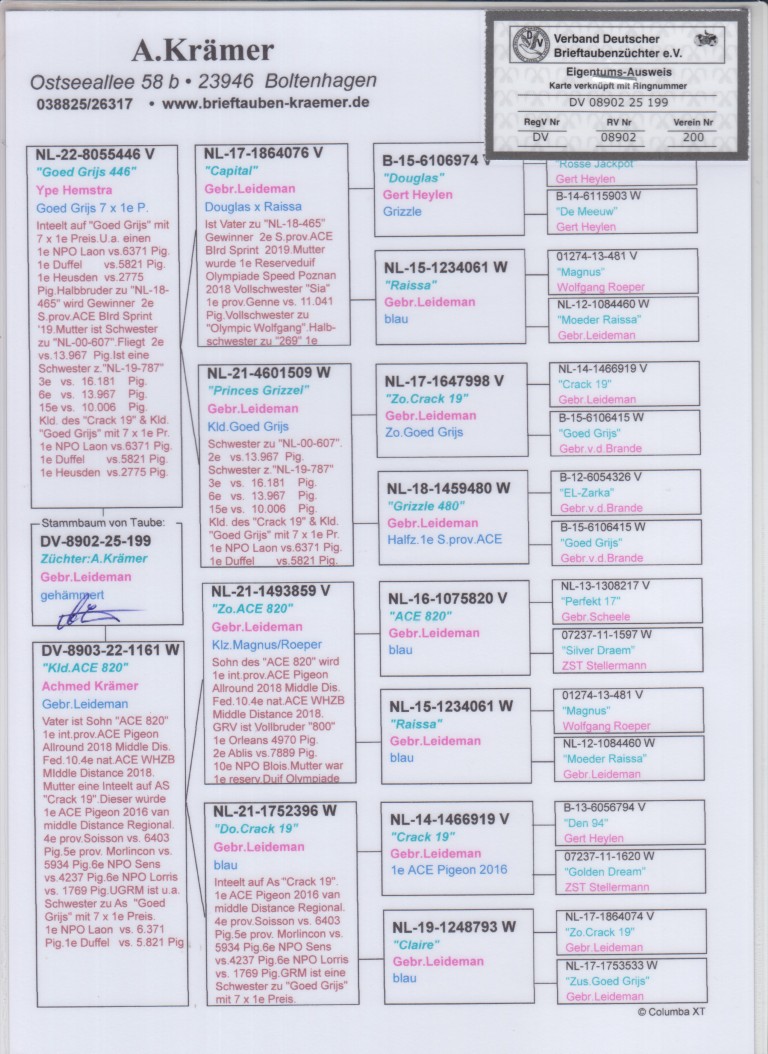 A.Krämer
Ostseeallee 58 b • 23946 Boltenhagen
038825/26317 • www.brieftauben-kraemer.de
Verband Deutscher
Brieftaubenzüchter e.V.
Eigentums-Ausweis
Karte verknüpft mit Ringnummer
DV 08902 25 199
RegV Nr RV Nr Verein Nr
DV 08902 200
NL-22-8055446 V
"Goed Grijs 446"
Ype Hemstra
Goed Grijs 7 x 1e P.
Inteelt auf "Goed Grijs" mit
7 x 1e Preis.U.a. einen
1e NPO Laon vs.6371 Pig.
1e Duffel vs.5821 Pig.
1e Heusden vs.2775
Pig.Halbbruder zu "NL-18-
465" wird Gewinner 2e
S.prov.ACE BIrd Sprint
'19.Mutter ist Schwester
zu "NL-00-607".Fliegt 2e
vs.13.967 Pig.Ist eine
Schwester z."NL-19-787"
3e vs. 16.181 Pig.
6e vs. 13.967 Pig.
15e vs. 10.006 Pig.
Kld. des "Crack 19" & Kld.
"Goed Grijs" mit 7 x 1e Pr.
1e NPO Laon vs.6371 Pig.
1e Duffel vs.5821 Pig.
1e Heusden vs.2775 Pig.
Stammbaum von Taube:
DV-8902-25-199
Züchter:A.Krämer
Gebr.Leideman
gehämmert
DV-8903-22-1161 W
"Kld.ACE 820"
Achmed Krämer
Gebr.Leideman
Vater ist Sohn "ACE 820"
1e int.prov.ACE Pigeon
Allround 2018 Middle Dis.
Fed.10.4e nat.ACE WHZB
MIddle Distance 2018.
Mutter eine Inteelt auf AS
"Crack 19".Dieser wurde
1e ACE Pigeon 2016 van
middle Distance Regional.
4e prov.Soisson vs. 6403
Pig.5e prov. Morlincon vs.
5934 Pig.6e NPO Sens
vs.4237 Pig.6e NPO Lorris
vs. 1769 Pig.UGRM ist u.a.
Schwester zu As "Goed
Grijs" mit 7 x 1e Preis.
1e NPO Laon vs. 6.371
Pig.1e Duffel vs. 5.821 Pig
NL-17-1864076 V
"Capital"
Gebr.Leideman
Douglas x Raissa
Ist Vater zu "NL-18-465"
Gewinner 2e S.prov.ACE
BIrd Sprint 2019.Mutter
wurde 1e Reserveduif
Olympiade Speed Poznan
2018 Vollschwester "Sia"
1e prov.Genne vs. 11.041
Pig.Vollschwester zu
"Olympic Wolfgang".Halb-
schwester zu "269" 1e
NL-21-4601509 W
"Princes Grizzel"
Gebr.Leideman
Kld.Goed Grijs
Schwester zu "NL-00-607".
2e vs.13.967 Pig.
Schwester z."NL-19-787"
3e vs. 16.181 Pig.
6e vs. 13.967 Pig.
15e vs. 10.006 Pig.
Kld. des "Crack 19" & Kld.
"Goed Grijs" mit 7 x 1e Pr.
1e NPO Laon vs.6371 Pig.
1e Duffel vs.5821 Pig.
NL-21-1493859 V
"Zo.ACE 820"
Gebr.Leideman
Klz.Magnus/Roeper
Sohn des "ACE 820" wird
1e int.prov.ACE Pigeon
Allround 2018 Middle Dis.
Fed.10.4e nat.ACE WHZB
Middle Distance 2018.
GRV ist Vollbruder "800"
1e Orleans 4970 Pig.
2e Ablis vs.7889 Pig.
10e NPO Blois.Mutter war
1e reserv.Duif Olympiade
NL-21-1752396 W
"Do.Crack 19"
Gebr.Leideman
blau
Inteelt auf As "Crack 19".
1e ACE Pigeon 2016 van
middle Distance Regional.
4e prov.Soisson vs. 6403
Pig.5e prov. Morlincon vs.
5934 Pig.6e NPO Sens
vs.4237 Pig.6e NPO Lorris
vs. 1769 Pig.GRM ist eine
Schwester zu "Goed Grijs"
mit 7 x 1e Preis.
B-15-6106974 V
"Douglas"
Gert Heylen
Grizzle
NL-15-1234061 W
"Raissa"
Gebr.Leideman
blau
NL-17-1647998 V
"Zo.Crack 19"
Gebr.Leideman
Zo.Goed Grijs
NL-18-1459480 W
"Grizzle 480"
Gebr.Leideman
Halfz.1e S.prov.ACE
NL-16-1075820 V
"ACE 820"
Gebr.Leideman
blau
NL-15-1234061 W
"Raissa"
Gebr.Leideman
blau
NL-14-1466919 V
"Crack 19"
Gebr.Leideman
1e ACE Pigeon 2016
NL-19-1248793 W
"Claire"
Gebr.Leideman
blau
"Rosse Jackpot"
Gert Heylen
B-14-6115903 W
"De Meeuw"
Gert Heylen
01274-13-481 V
"Magnus"
Wolfgang Roeper
NL-12-1084460 W
"Moeder Raissa"
Gebr.Leideman
NL-14-1466919 V
"Crack 19"
Gebr.Leideman
B-15-6106415 W
"Goed Grijs"
Gebr.v.d.Brande
B-12-6054326 V
"EL-Zarka"
Gebr.v.d.Brande
B-15-6106415 W
"Goed Grijs"
Gebr.v.d.Brande
NL-13-1308217 V
"Perfekt 17"
Gebr.Scheele
07237-11-1597 W
"Silver Draem"
ZST Stellermann
01274-13-481 V
"Magnus"
Wolfgang Roeper
NL-12-1084460 W
"Moeder Raissa"
Gebr.Leideman
B-13-6056794 V
"Den 94"
Gert Heylen
07237-11-1620 W
"Golden Dream"
ZST Stellermann
NL-17-1864074 V
"Zo.Crack 19"
Gebr.Leideman
NL-17-1753533 W
"Zus.Goed Grijs"
Gebr.Leideman
© Columba XT